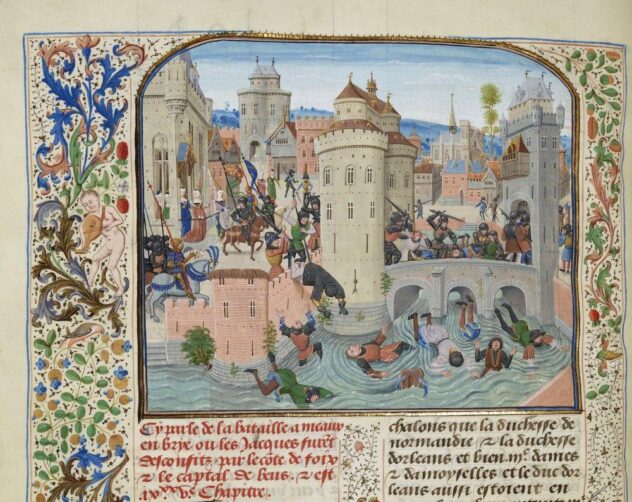 Cy parle de la bataille a meaux
en brye ou les Jacques furẽt
desconfits par le cõte de foix
⁊ le captal de beus. ⁊ est
Chapitre.
chalons que la duchesse de
normandie ⁊ la duchesse
dorleans et bien dames
⁊ damoyselles et le duc dor
leans aussi estoient en